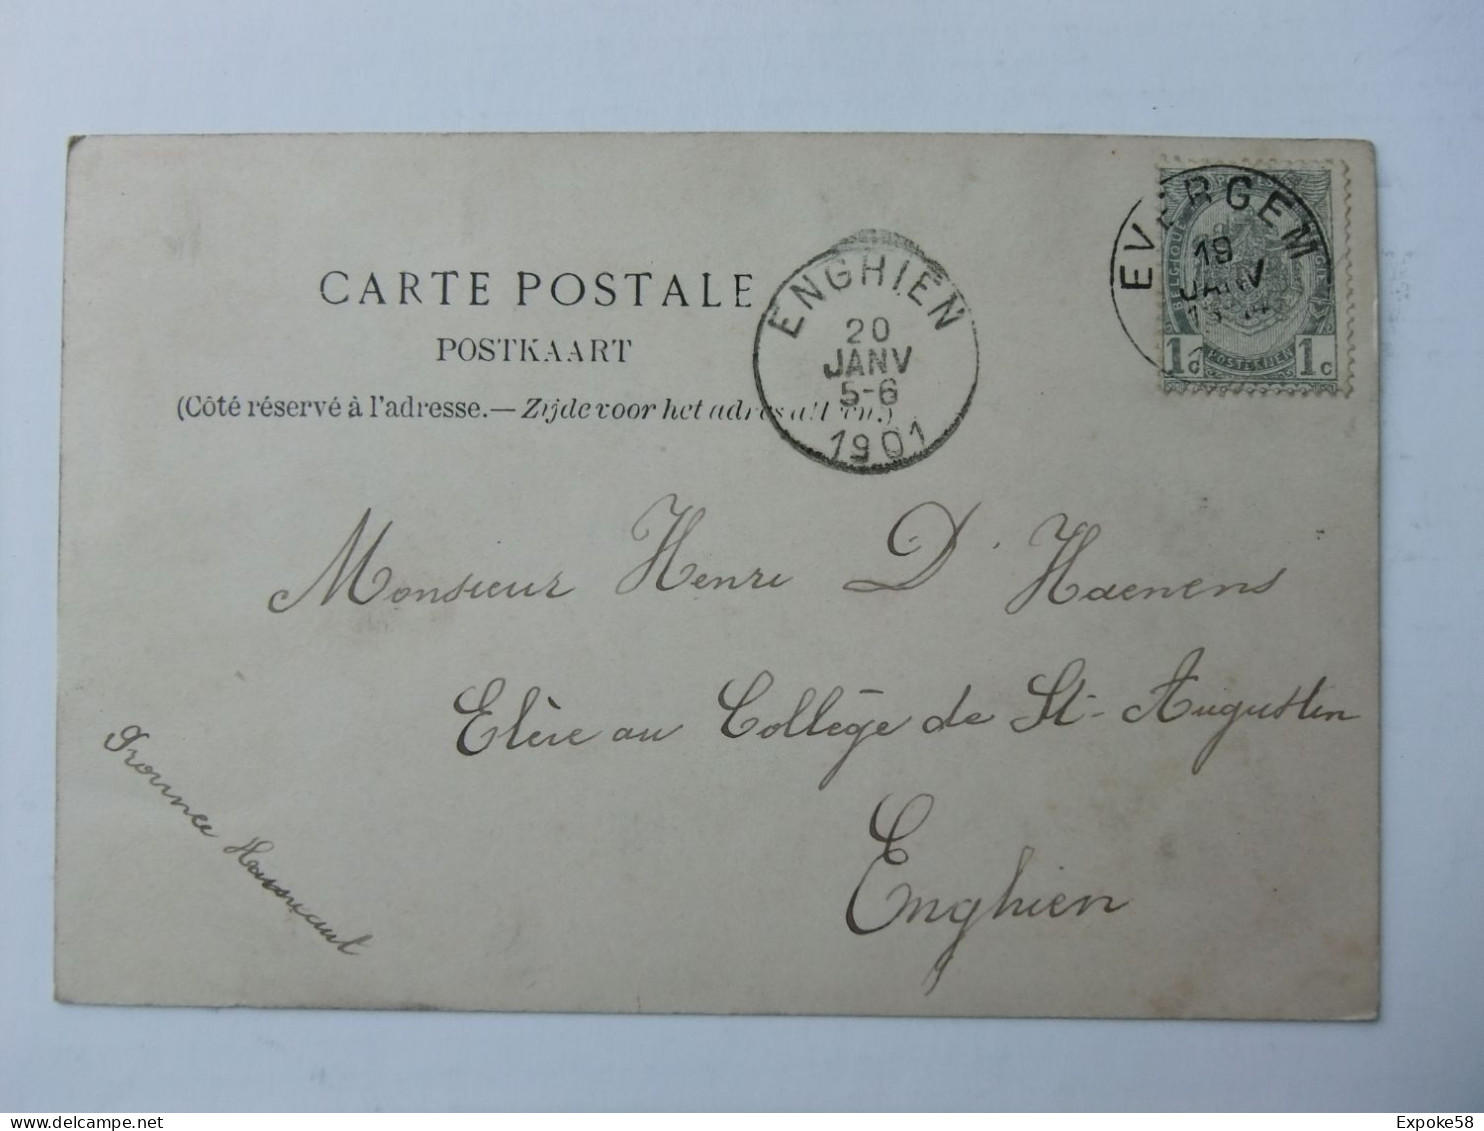 CARTE POSTALE
POSTKAART
(Côté réservé à l'adresse.— Zijde voor het adres all en.)
ENGHIEN
20
JANV
5-6
1901
EVERGEM
19
JANV
BELGIQUE
POSTERIJEN
1c 1c
Monsieur Henri D'Haenens
Elève au Collège de St-Augustin
Enghien
Province Hainaut
www.delcampe.net
Expoke58